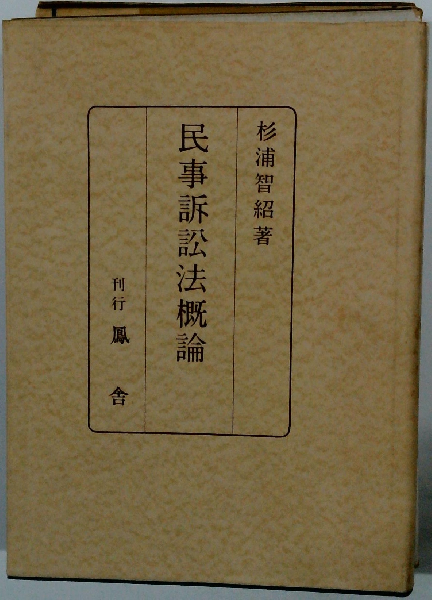 杉浦智紹著
民事訴訟法概論
刊行 鳳舎